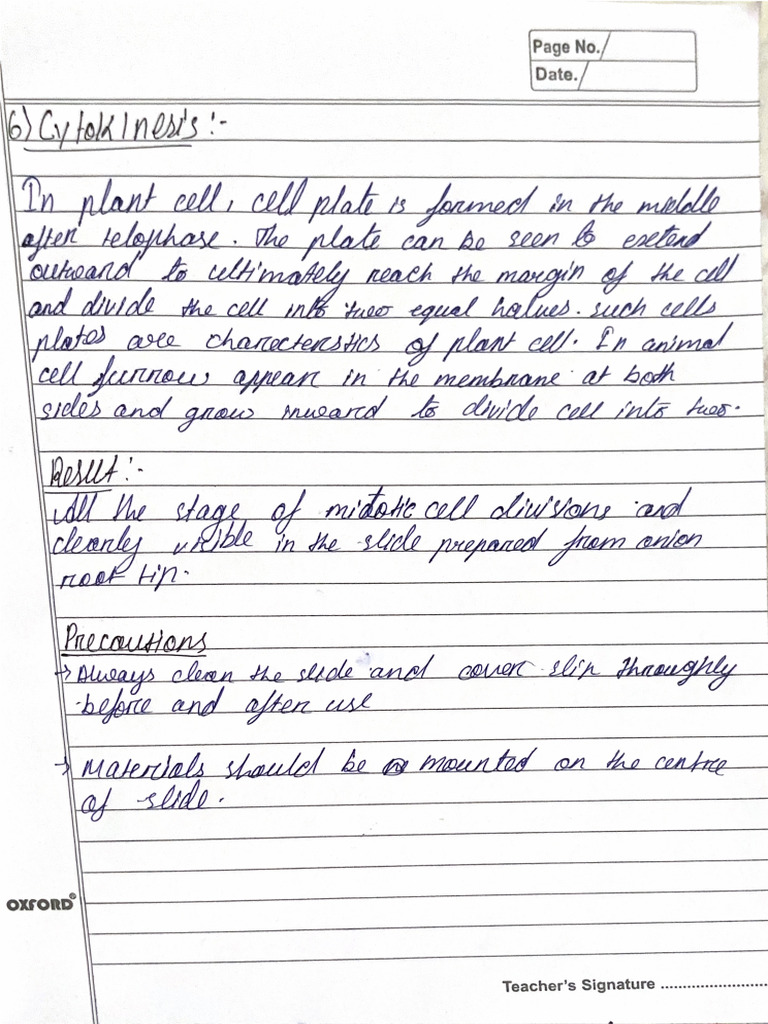 Page No.
Date.
6) Cytokinesis :-
In plant cell, cell plate is formed in the middle
after telophase. The plate can be seen to extend
outward to ultimately reach the margin of the cell
and divide the cell into two equal halves. such cells
plates are characteristics of plant cell. In animal
cell furrows appear in the membrane at both
sides and grow inward to divide cell into two.
Result :-
All the stage of mitotic cell divisions and
clearly visible in the slide prepared from onion
root tip.
Precautions
→ Always clean the slide and cover slip throughly
before and after use
→ Materials should be mounted on the centre
of slide.
OXFORD
Teacher's Signature ........................